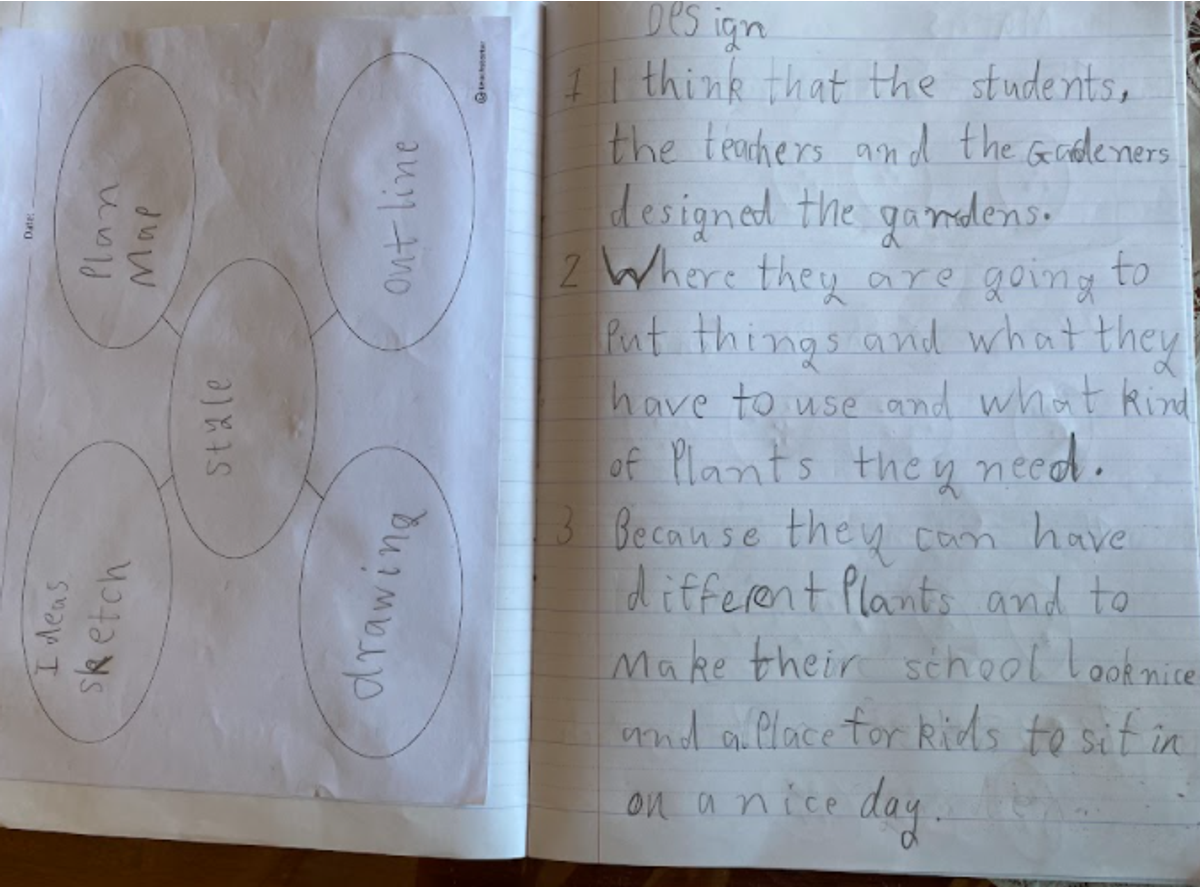 Date:
Plan
Map
out line
style
I deas
sketch
drawing
©teachstarter
Design
1 I think that the students,
the teachers and the Gardeners
designed the gardens.
2 Where they are going to
Put things and what they
have to use and what kind
of Plants they need.
3 Because they can have
different Plants and to
Make their school look nice
and a Place for kids to sit in
on a nice day.